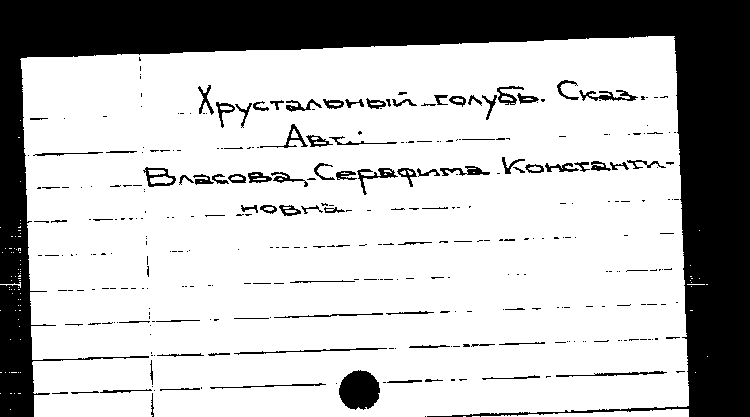 Хрустальный голубь. Сказ.
Авт.:
Власова, Серафима Константи-
новна